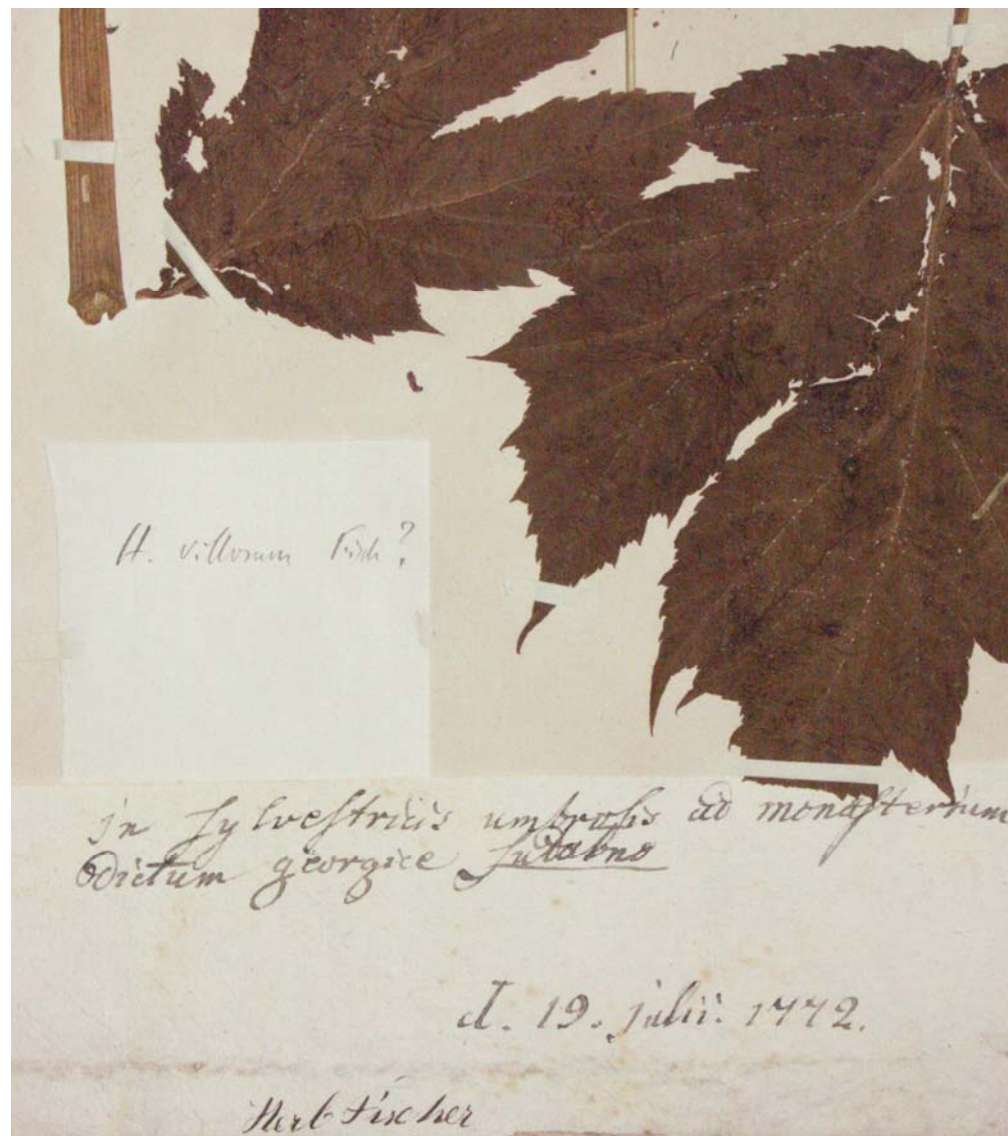 H. villosum Fisch?
in sylvestricis umbrosis ad monasterium
dictum georgice
d. 19. julii. 1772.
Herb Fischer